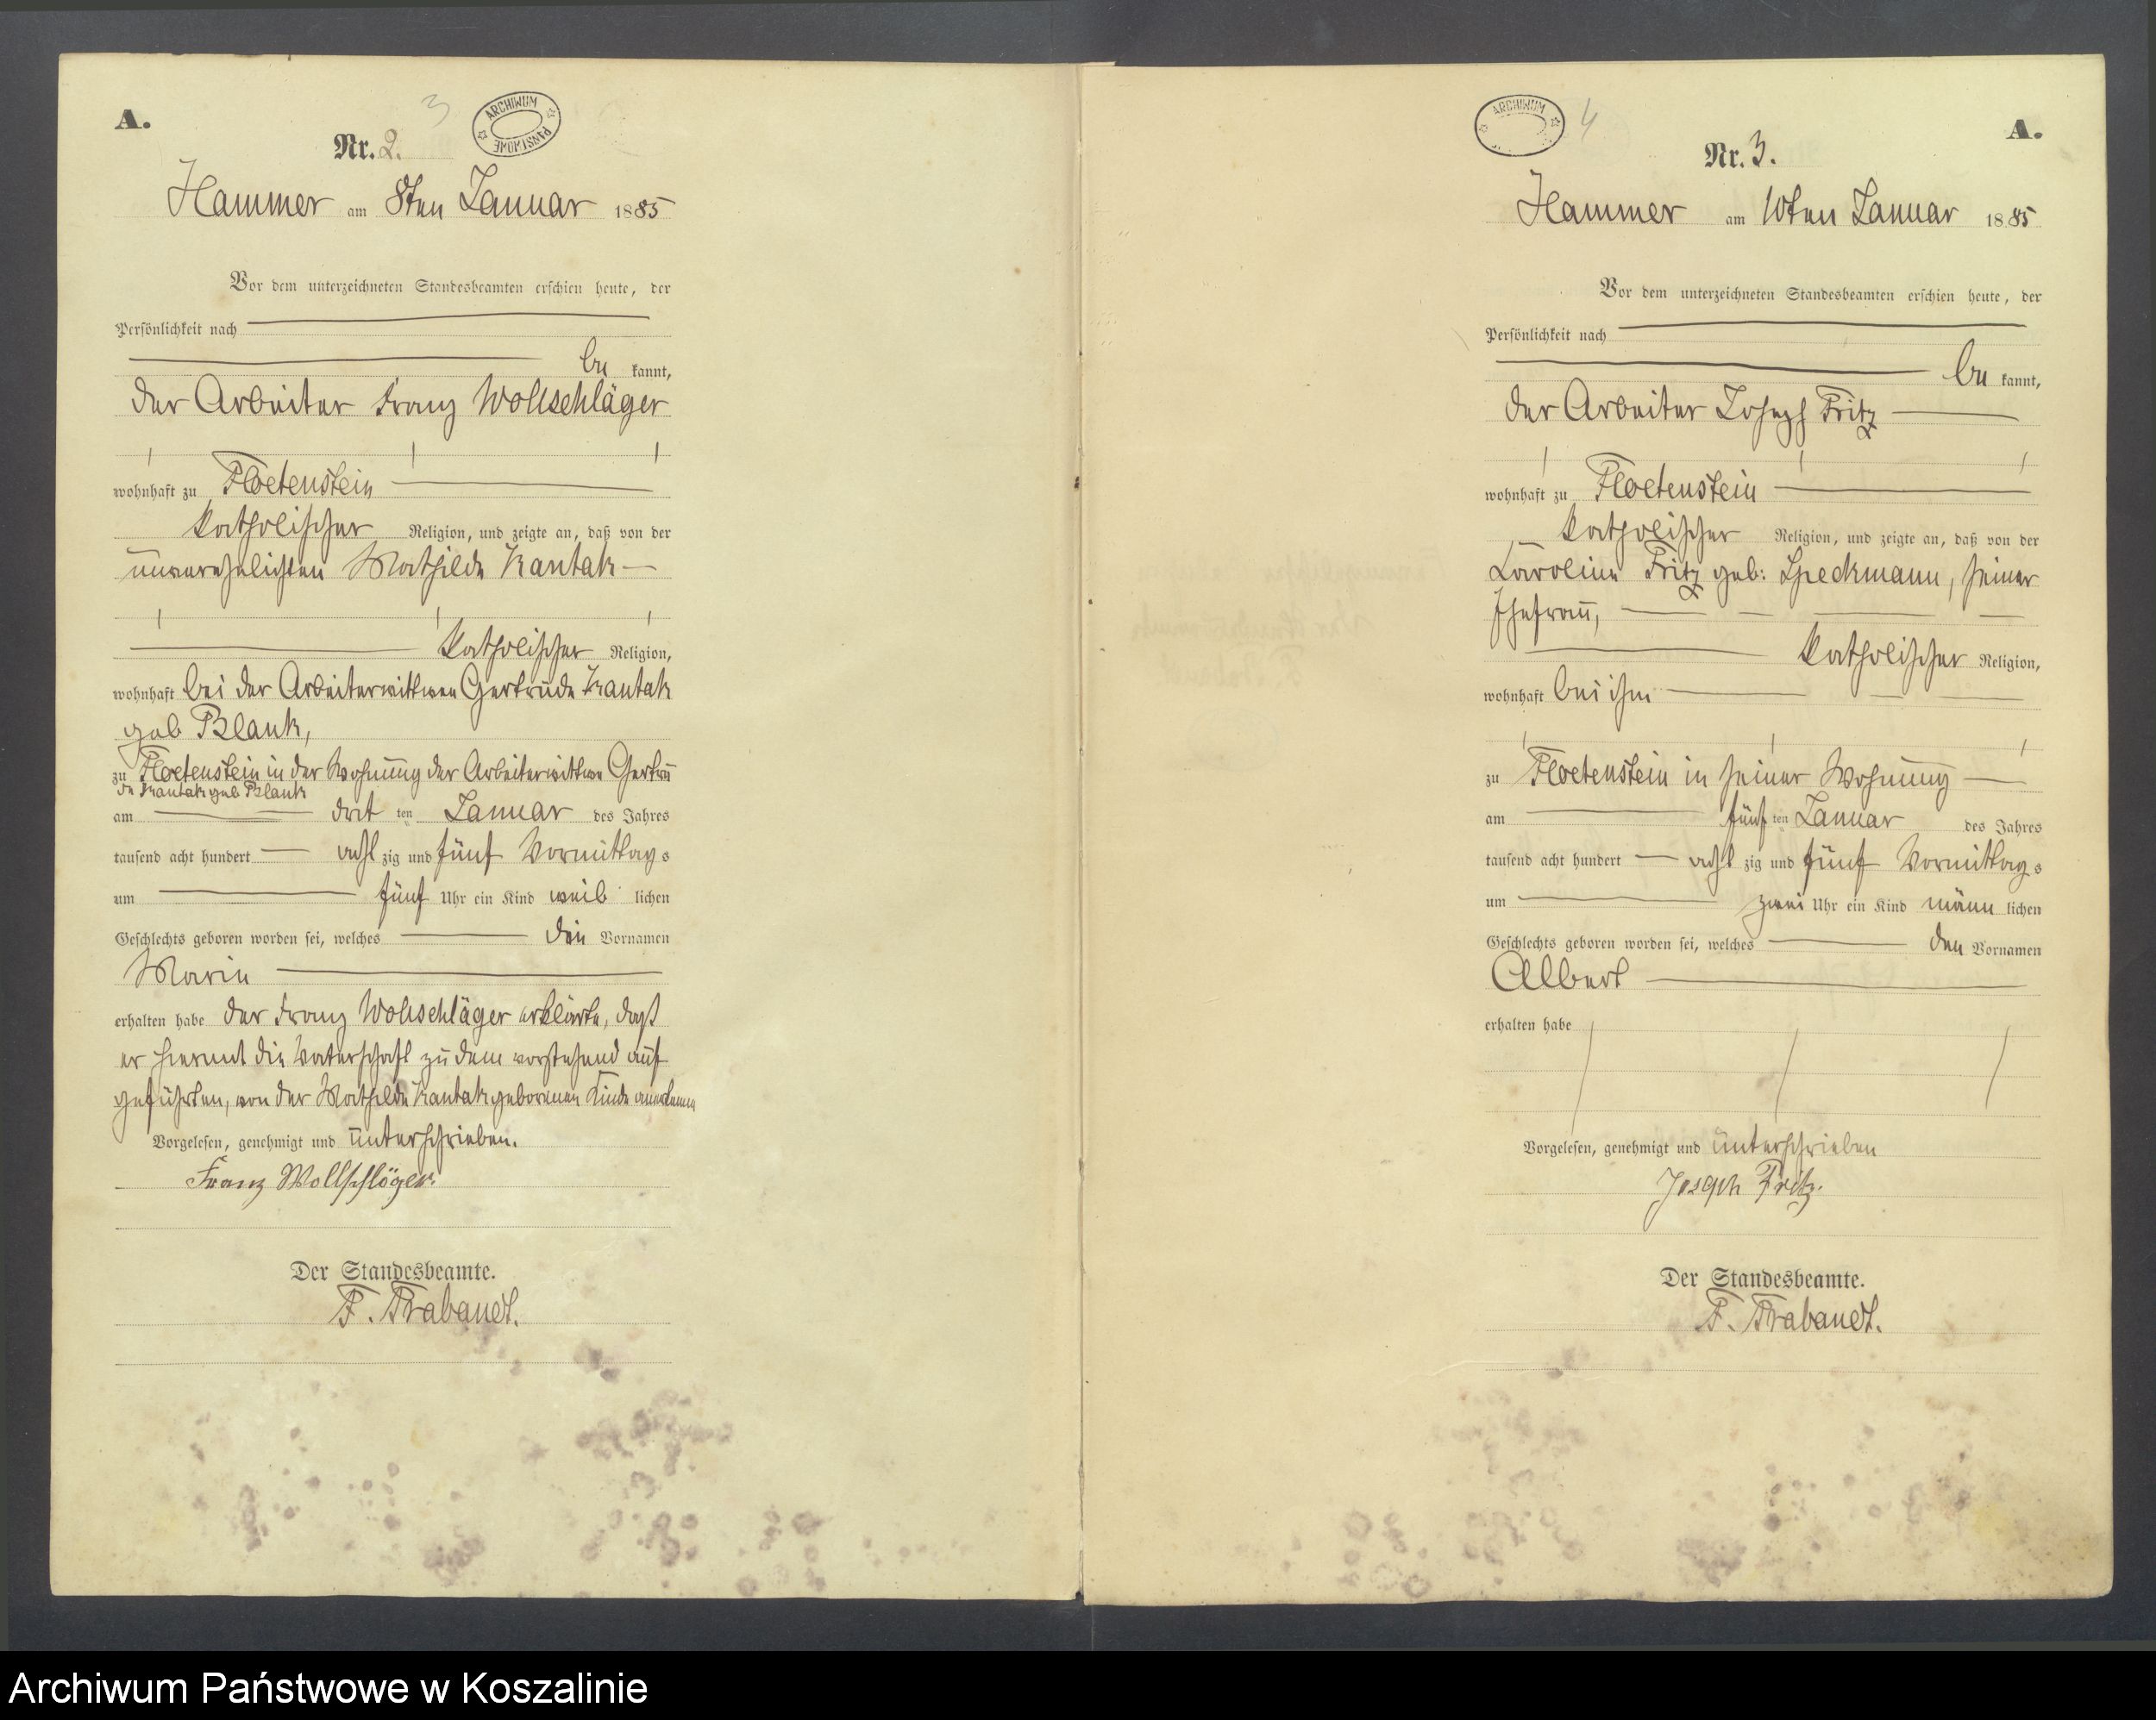 A.
3
ARCHIWUM PAŃSTWOWE
Nr. 2.
Hammer am 8ten Januar 1885
Vor dem unterzeichneten Standesbeamten erschien heute, der
Persönlichkeit nach
be kannt,
der Arbeiter Franz Wollschläger
wohnhaft zu Floetenstein
katholischer Religion, und zeigte an, daß von der
unverehelichten Mathilde Kantak
katholischer Religion,
wohnhaft bei der Arbeiterwittwe Gertrude Kantak
geb Blank,
zu Floetenstein in der Wohnung der Arbeiterwittwe Gertru
de Kantak geb Blank
am drit ten Januar des Jahres
tausend acht hundert acht zig und fünf Vormittags
um fünf Uhr ein Kind weib lichen
Geschlechts geboren worden sei, welches den Vornamen
Marie
erhalten habe der Franz Wollschläger erklärte, daß
er hiermit die Vaterschaft zu dem vorstehend auf
geführten, von der Mathilde Kantak geborenen Kinde anerkenne
Vorgelesen, genehmigt und unterschrieben.
Franz Wollschläger.
Der Standesbeamte.
F. Trabandt.
ARCHIWUM
4
A.
Nr. 3.
Hammer am 10ten Januar 1885
Vor dem unterzeichneten Standesbeamten erschien heute, der
Persönlichkeit nach
be kannt,
der Arbeiter Joseph Fritz
wohnhaft zu Floetenstein
katholischer Religion, und zeigte an, daß von der
Caroline Fritz geb: Speckmann, seiner
Ehefrau,
katholischer Religion,
wohnhaft bei ihm
zu Floetenstein in seiner Wohnung
am fünf ten Januar des Jahres
tausend acht hundert acht zig und fünf Vormittags
um zwei Uhr ein Kind männ lichen
Geschlechts geboren worden sei, welches den Vornamen
Albert
erhalten habe
Vorgelesen, genehmigt und unterschrieben
Joseph Fritz.
Der Standesbeamte.
F. Trabandt.
Archiwum Państwowe w Koszalinie